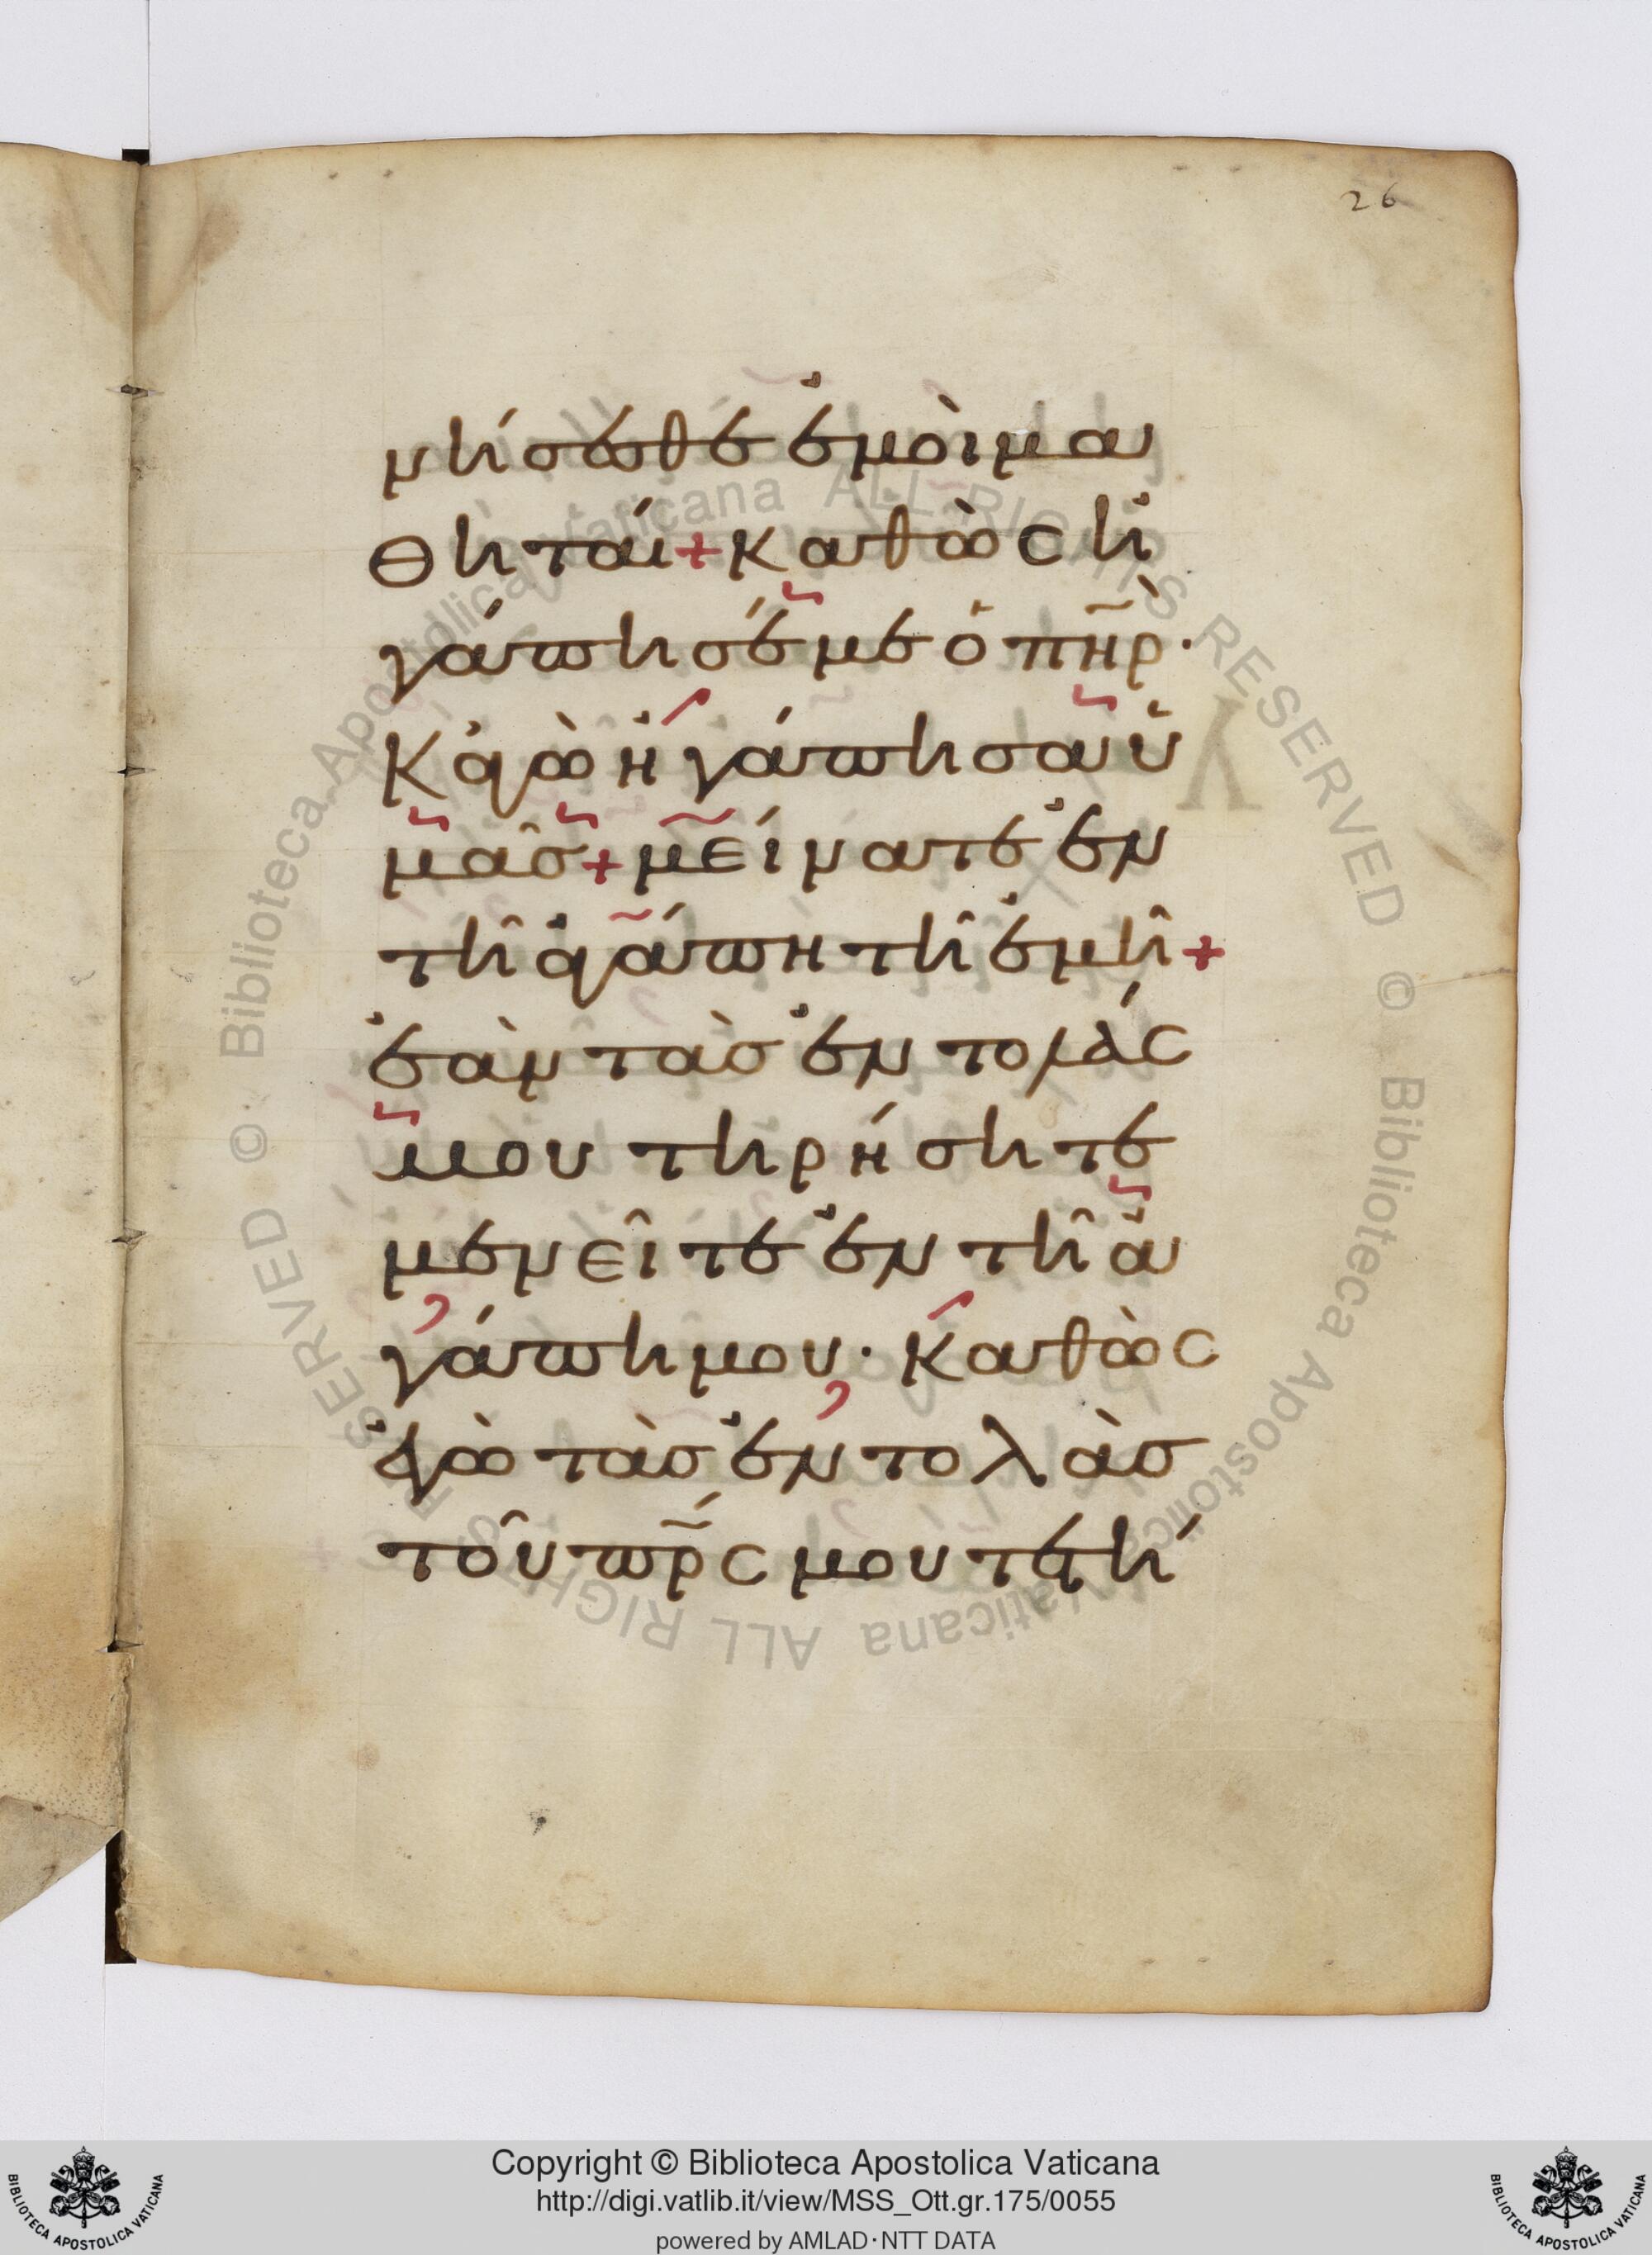 26
νήσεσθε ἐμοὶ μα
θηταί + καθὼς ἠ
γάπησέ με ὁ πηρ·
Κἀγὼ ἠγάπησα ὑ
μᾶσ + μείνατε ἐν
τῆ ἀγάπη τῆ ἐμῆ +
ἐὰν τὰσ ἐντολάς
μου τηρήσητε
μενεῖτε ἐν τῆ ἀ
γάπη μου· Καθὼς
ἐγὼ τὰσ ἐντολὰσ
τοῦ πρς μου τετή
© Biblioteca Apostolica Vaticana ALL RIGHTS RESERVED
© Biblioteca Apostolica Vaticana ALL RIGHTS RESERVED
Copyright © Biblioteca Apostolica Vaticana
http://digi.vatlib.it/view/MSS_Ott.gr.175/0055
powered by AMLAD·NTT DATA
BIBLIOTECA APOSTOLICA VATICANA
BIBLIOTECA APOSTOLICA VATICANA